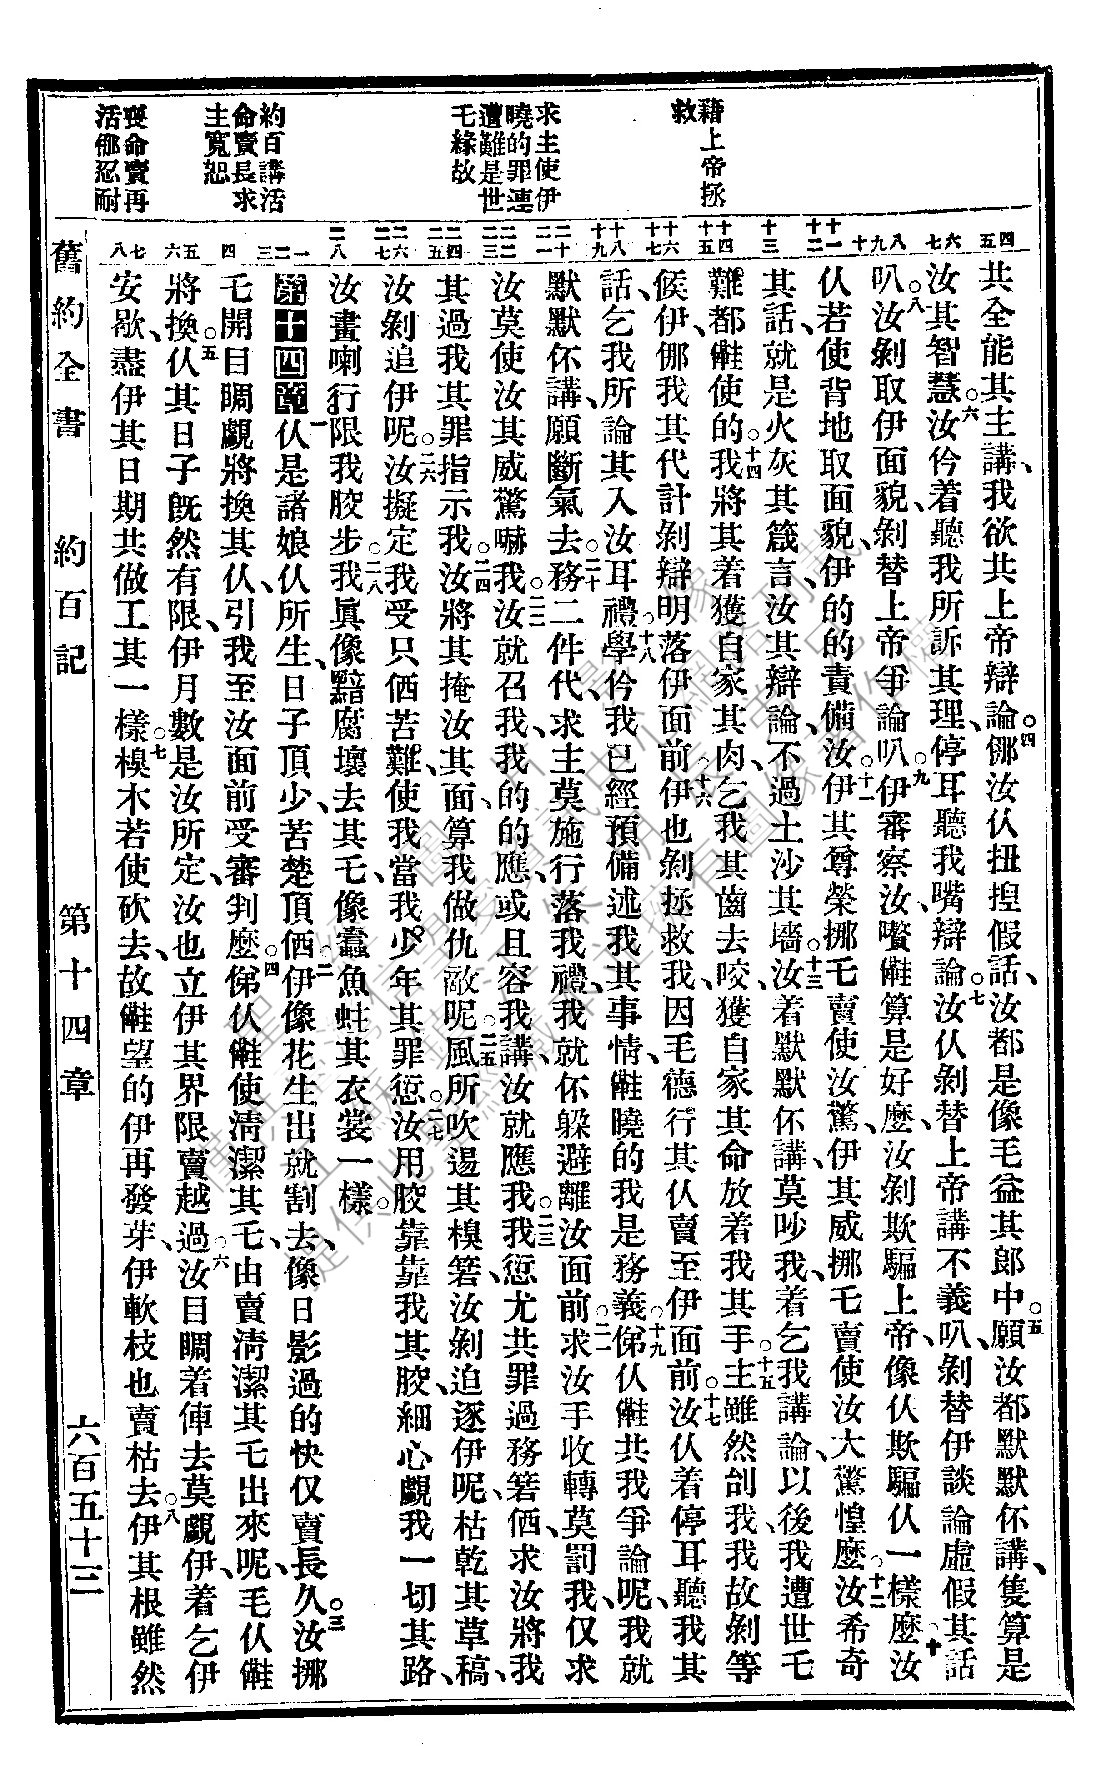 藉上帝拯
救
求主使伊
曉的罪連
遭難是世
乇緣故
約百講活
命賣長求
主寬恕
喪命賣再
活都忍耐
共全能其主講、我欲共上帝辯論。四㑚汝仈扭揑假話、汝都是像毛益其郎中。五願汝都默默伓講、隻算是
汝其智慧。六汝仱着聽我所訴其理、停耳聽我嘴辯論。七汝仈剝替上帝講不義叭、剝替伊談論虛假其話
叭。八汝剝取伊面貌、剝替上帝爭論叭。九伊審察汝、嚽𣍐算是好麼、汝剝欺騙上帝、像仈欺騙仈一樣麼。十汝
仈若使背地取面貌、伊的的責備汝。十一伊其尊榮挪乇賣使汝驚、伊其威挪乇賣使汝大驚惶麼。十二汝希奇
其話、就是火灰其箴言、汝其辯論、不過土沙其墻。十三汝着默默伓講、莫吵我、着乞我講論、以後我遭世乇
難、都𣍐使的。十四我將其着獲自家其肉、乞我其齒去咬、獲自家其命放着我其手。十五主雖然刣我、我故剝等
候伊、㑚我其代計剝辯明落伊面前。十六伊也剝拯救我、因毛德行其仈賣至伊面前。十七汝仈着停耳聽我其
話、乞我所論其入汝耳禮。十八學仱我已經預備述我其事情、𣍐曉的我是務義。十九俤仈𣍐共我爭論呢、我就
默默伓講、願斷氣去。二十務二件代、求主莫施行落我禮、我就伓躲避離汝面前。二一求汝手收轉莫罰我、仅求
汝莫使汝其威驚嚇我。二二汝就召我、我的的應、或且容我講、汝就應我。二三我愆尤共罪過務箬價、求汝將我
其過我其罪指示我。二四汝將其掩汝其面、算我做仇敵呢。二五風所吹逿其樉箬、汝剝追逐伊呢、枯乾其草稿、
汝剝追伊呢。二六汝擬定我受只価苦難、使我當我少年其罪愆。二七汝用骹靠靠我其骹、細心覷我一切其路、
汝畫喇行、限我骹步。二八我眞像黯腐壞去其乇、像蠹魚蛀其衣裳一樣。
第十四章一仈是諸娘仈所生、日子頂少、苦楚頂価。二伊像花生出就割去、像日影過的快、仅賣長久。三汝挪
乇開目睭覷將換其仈、引我至汝面前受審判麼。四俤仈𣍐使淸潔其乇、由賣淸潔其乇出來呢、毛仈𣍐
將換。五仈其日子旣然有限、伊月數是汝所定、汝也立伊其界限賣越過。六汝目睭着俥去莫覷伊、着乞伊
安歇、盡伊其日期共做工其一樣。七樉木若使砍去、故𣍐望的伊再發芽、伊軟枝也賣枯去。八伊其根雖然
舊約全書 約百記 第十四章 六百五十三